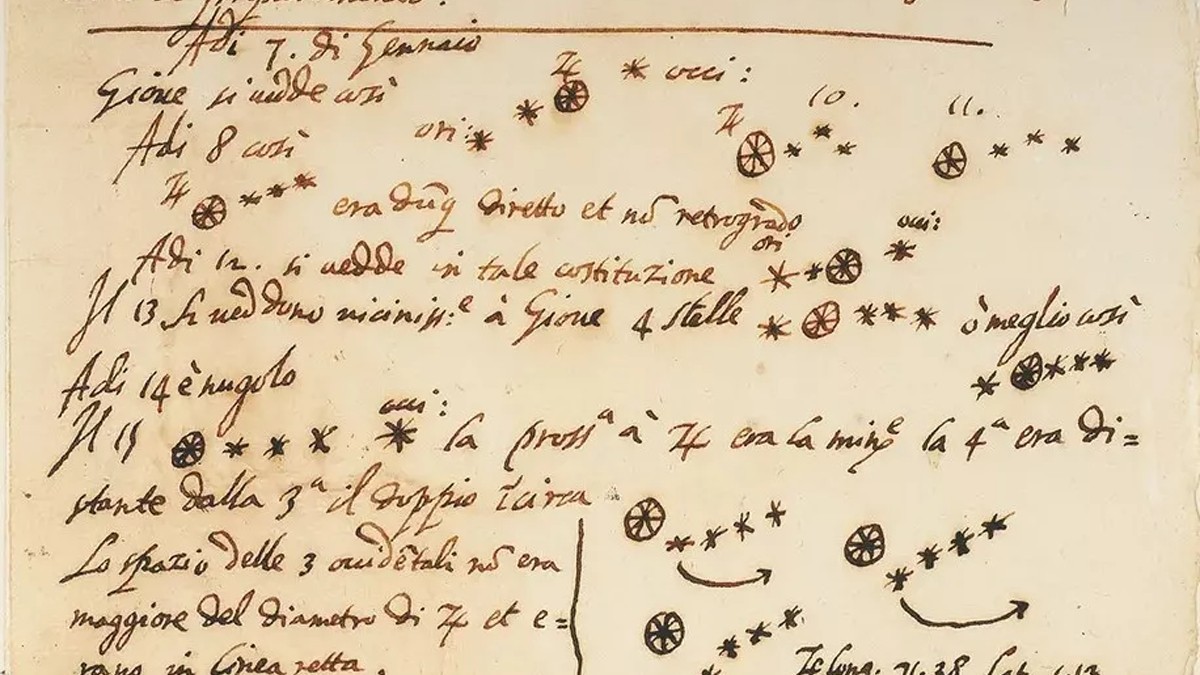 Adi 7. di Gennaio
Gioue si uedde così
♃ occi:
ori:
Adi 8 così
♃ 10. 11.
♃ era dūq diretto et nō retrogrado
Adi 12. si uedde in tale costituzione ori occi:
Il 13 si ueddono uicinisse à Gioue 4 stelle ò meglio così
Adi 14 è nugolo
Il 15 occi: la prossa à ♃ era la mine la 4a era di=
stante dalla 3a il doppio circa
Lo spazio delle 3 occidētali nō era
maggiore del diametro di ♃ et e=
rano in linea retta.
♃ long. 71.38 lat. 1.13